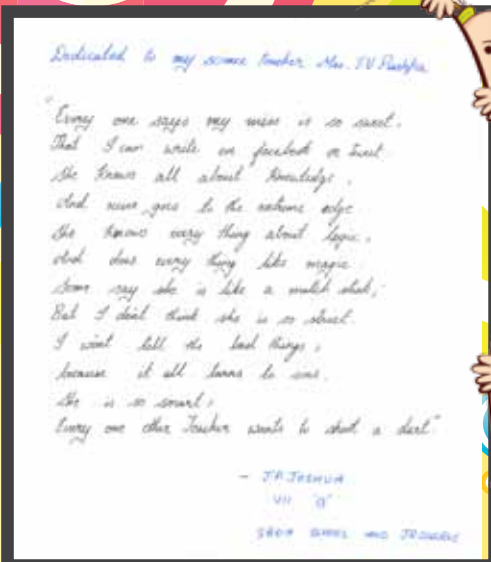 Dedicated to my science teacher Mrs. T V Pushpa
"Every one says my miss is so sweet,
That I can write on facebook or tweet.
She knows all about knowledge,
And never goes to the extreme edge.
She knows every thing about logic,
And does every thing like magic.
Some say she is like a match stick,
But I don't think she is so strict.
I won't tell the bad things,
because it all turns to
She is so smart,
Every one other Teacher wants to shoot a dart"
- J.P. JOSHUA
VII
SCHOOL AND